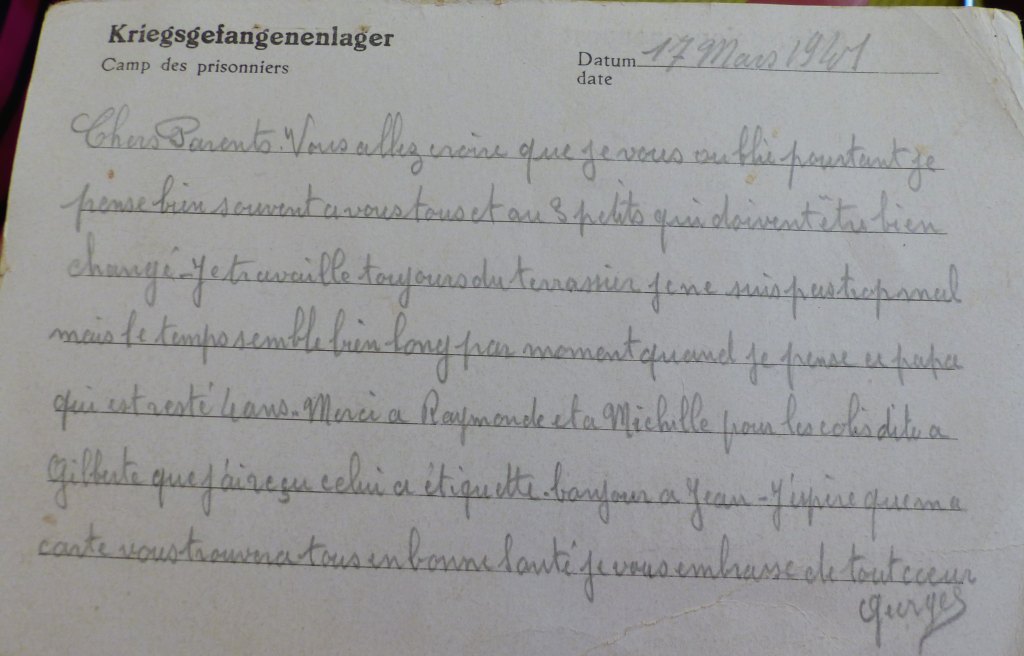 Kriegsgefangenenlager
Camp des prisonniers
Datum 17 Mars 1941
date
Chers Parents. Vous allez croire que je vous oublie pourtant je
pense bien souvent a vous tous et au 3 petits qui doivent être bien
changé - Je travaille toujours du terrassier je ne suis pas trop mal
mais le temps semble bien long par moment quand je pense a papa
qui est resté 4 ans. Merci a Raymonde et a Michelle pour les colis dite a
Gilberte que j'ai reçu celui a étiquette. bonjour a Jean - J'éspère que ma
carte vous trouvera tous en bonne Santé je vous embrasse de tout coeur
Georges